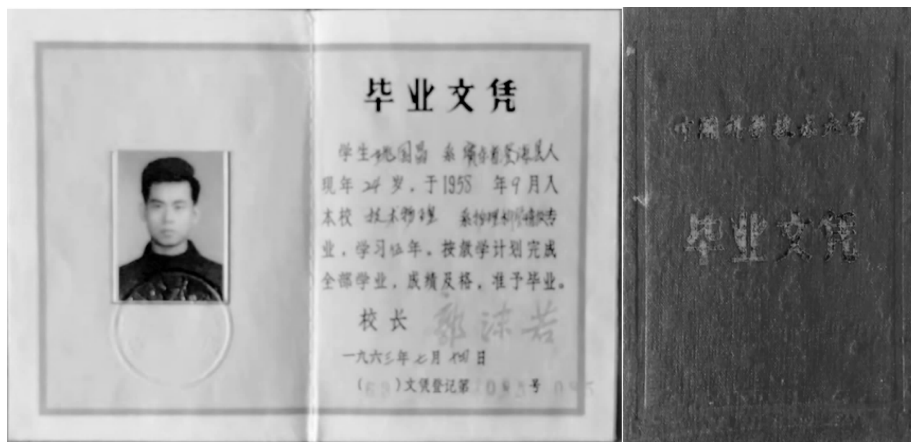 毕业文凭
学生 国昌 系 人
现年24岁，于1958年9月入
本校技术物理系 专
业，学习伍年。按教学计划完成
全部学业，成绩及格，准予毕业。
校长 郭沫若
一九六三年七月 日
( )文凭登记第 号
中国科学技术大学
毕业文凭